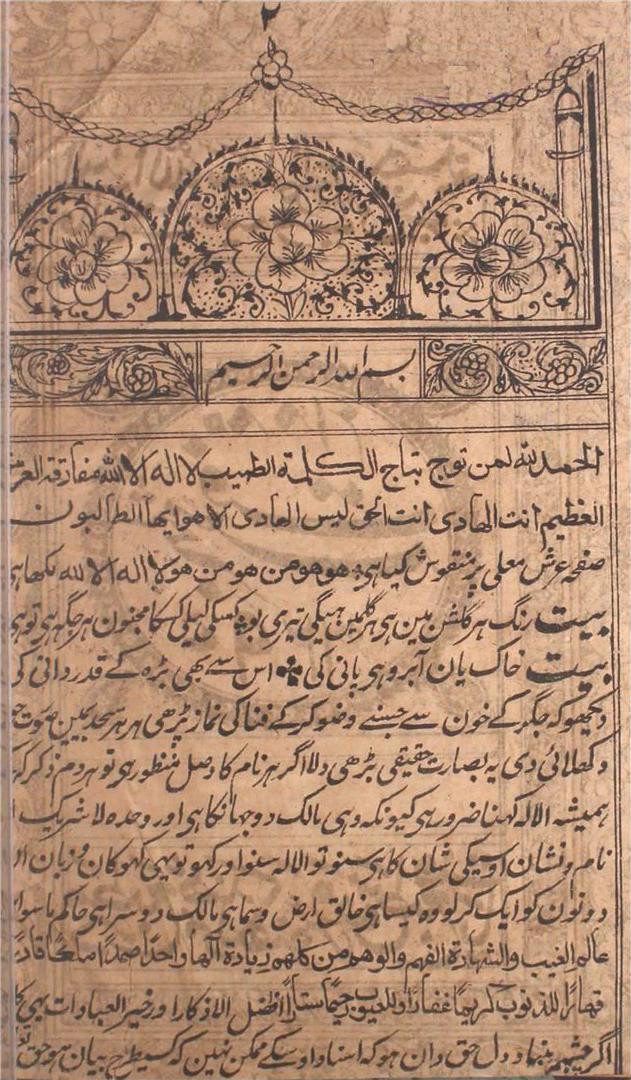 ٢
بسم الله الرحمن الرحيم
الحمد لله لمن توج بتاج الكلمة الطيب لا اله الا الله مفارقة العرش
العظيم انت الهادى انت الحق ليس الهادى الا هو ايها الطالبون
صفحہ عرش معلى پر منقوش کیا ہی ہو ہو من ہو من ہو لا اله الا لله لکھا ہی
بیت رنگ ہر گلشن مین ہی ہر گل مین ہیگی تیری بو کسکی لیلی کسکا مجنون ہر جگہ ہی تو ہی
بیت خاک یان آبرو ہی پانی کی اس سے بھی بڑہ کے قدردانی کی
دیکھو کہ جگر کے خون سے جسنے وضو کر کے فنا کی نماز پڑھی ہر ہر سجد مین صوت
دکھلائی دی یہ بصارت حقیقی بڑھی دلا اگر ہر نام کا وصل منظور ہی تو ہر دم ذکر
ہمیشہ الا لہ کہنا ضرور ہی کیونکہ وہی مالک دو جہانکا ہی اور وحدہ لا شریک
نام و نشان اوسیکی شان کا ہی سنو تو الا لہ سنو اور کہو تو یہی کہو کان و زبان
دونون کو ایک کر لو وہ کیسا ہی خالق ارض و سما ہی مالک دوسرا ہی حاکم ماسوا
عالم الغيب والشهادة الفهم والوهم من كلهم زيادة الها واحدا صمدا
قهارا للذنوب كريما غفارا وللعيوب رحيما ستارا افضل الاذكار اور خير العبادات یہی
اگر دل حق دان ہو کہ اسناد اوسکے ممکن نہین کہ کسیطرح بیان ہو حق